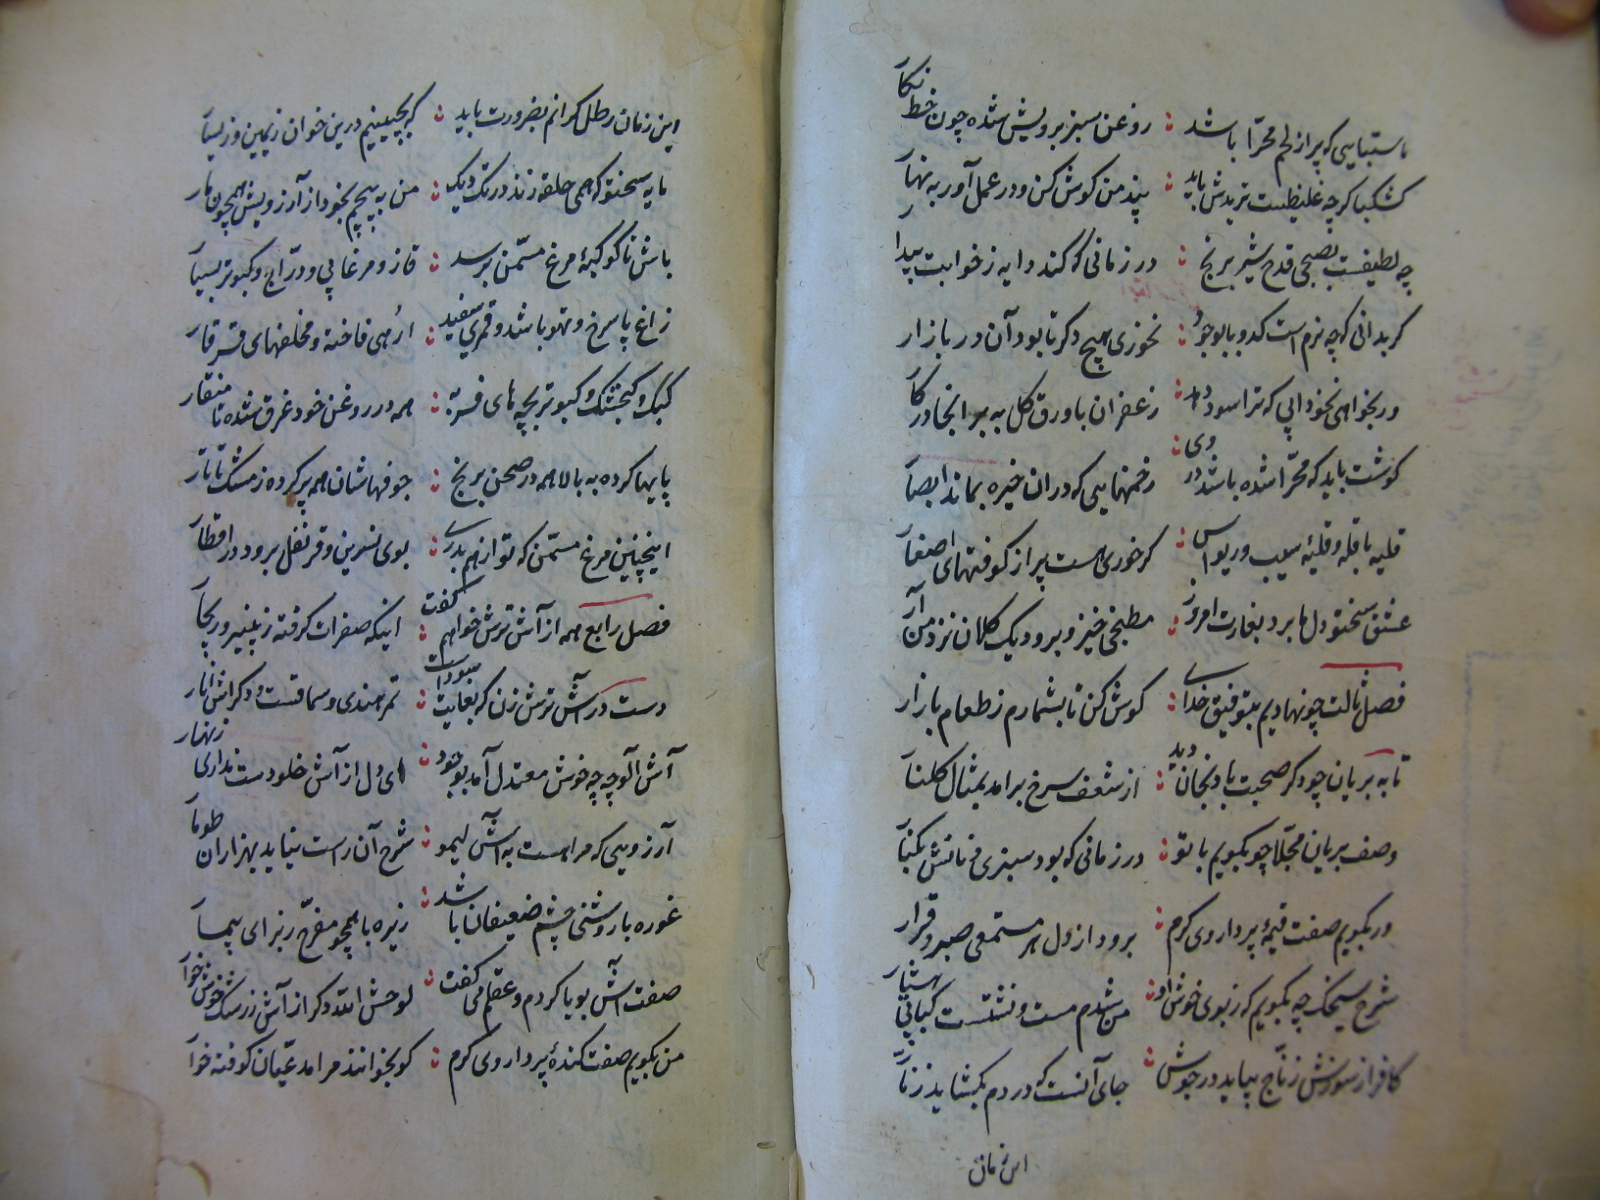 ماستبایی که پر از لحم محرّا باشد : روغن سبز برویش شده چون خط نکار
کشکبا کرچه غلیظست تریدش باید : پند من کوش کن و در عمل آور به نهار
چه لطیفست بصبحی قدح شیر برنج : در زمانی که کند دایه ز خوابت بیدار
کر بدانی که چه نرم است کدو با بوجود : نخوری هیچ دکر تا بود آن در بازار
ور بخواهی نخودابی که ترا سود دهد : زعفران با ورق کل به بر انجا در کار
کوشت باید که محرّا شده باشد در وی : زخمنهایی که در ان خیره بماند ابصار
قلیه باقله و قلیهٔ سیب و ریواس : کر خوری هست پر از کوفتهای اصغار
عشق سختو دل ما برد بغارت امروز : مطبخی خیز و برو دیک کلان نزد من آر
فصل ثالث چو نهادیم بتوفیق خدای : کوش کن تا بشمارم ز طعام بازار
تابه بریان چو دکر صحبت بادنجان دید : از شعف سرخ برامد بمثال کلنار
وصف بریان مجلّا چو بکویم با تو : در زمانی که بود سبزی و نانش بکنار
ور بکویم صفت قیمهٔ پر داروی کرم : برود از دل هر مستمعی صبر و قرار
شرح سیخک چه بکویم که ز بوی خوش او : من شدم مست و نشتست کبابی هشیار
کافر از سوزش زنّاج بیاید در جوش : جای آنست که در دم بکشاید زنار
این زمان
این زمان رطل کرانم بضرورت باید : که بچینیم درین خوان ز یمین و ز یسار
مایه سختو که همی حلقه زند در تک دیک : من به پیچم بخود از آرزویش همچون مار
باش تا کوکبهٔ مرغ مسمّن برسد : قاز و مرغابی و درّاج و کبوتر بسیار
زاغ پا سرخ و تهو باشد و قمری سفید : ار‌ُهی فاخته و مخلصهای قرقار
کبک و کنجشک و کبوتر بچه های فربه : همه در روغن خود غرق شده تا منقار
پایها کرده به بالا همه در صحن برنج : جوفهاشان همه پر کرده ز مشک تاتار
اینچنین مرغ مسمّن که تو از هم بدری : بوی نسرین و قرنفل برود در اقطار
فصل رابع همه از آش ترش خواهم کفت : اینکه صفرات کرفته ز پنیر و ریچار
دست در آش ترش زن که بغایت سودات : تمر هندی و سماقست و دکر اش انار
آش آلوچه چه خوش معتدل آمد بوجود : ای دل از آش خلو دست نداری زنهار
آرزویی که مرا هست به آش لیمو : شرح آن راست نیاید بهزاران طومار
غوره با روشنی چشم ضعیفان باشد : زیره با همچو مفرّح ز برای بیمار
صفت آش بوبا کردم و عقلم می کفت : لوحش اللّه دکر از آش زرشک خوش خوار
من بکویم صفت کندهٔ پر داروی کرم : کو بخوانند مرا مدعیان کوفته خوار